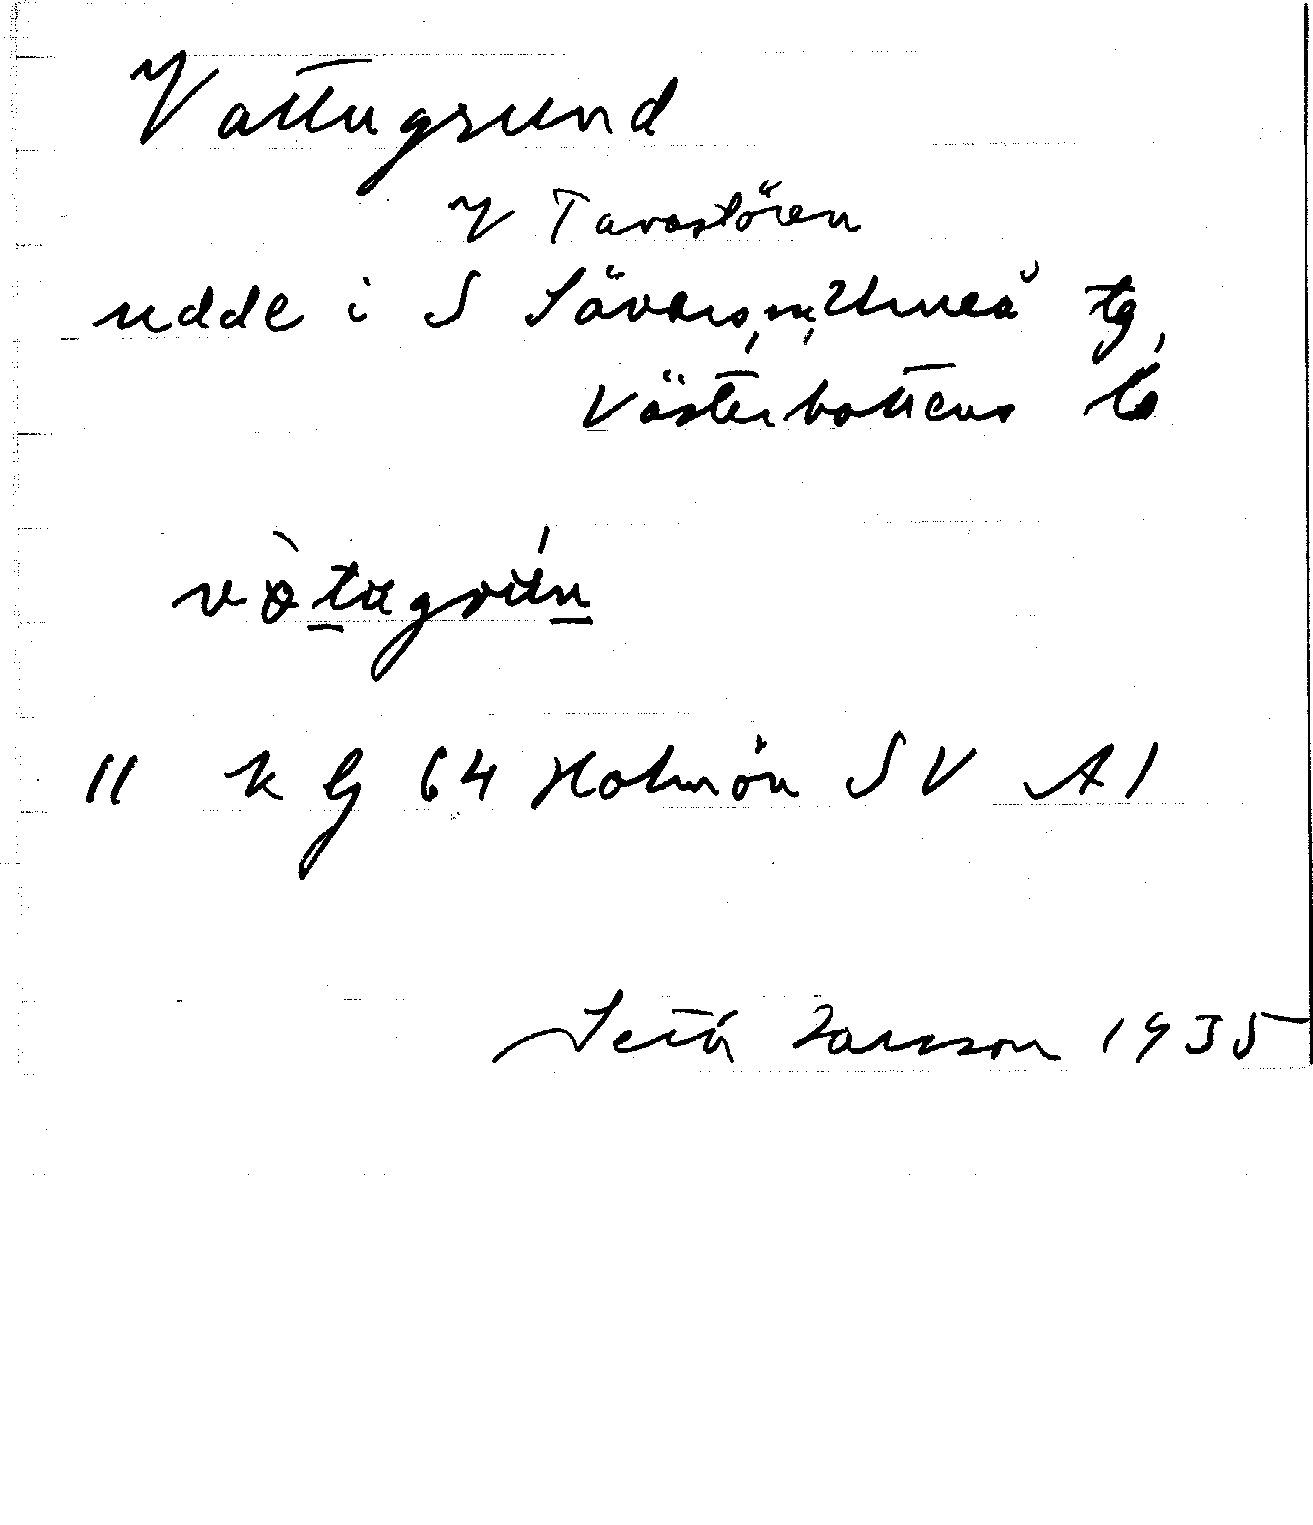 Vattugrund
V Tavastören
udde i S Sävars sn, Umeå tg,
Västerbottens
11 k bj 64 Holmön SV A1
Seth Larsson 1935